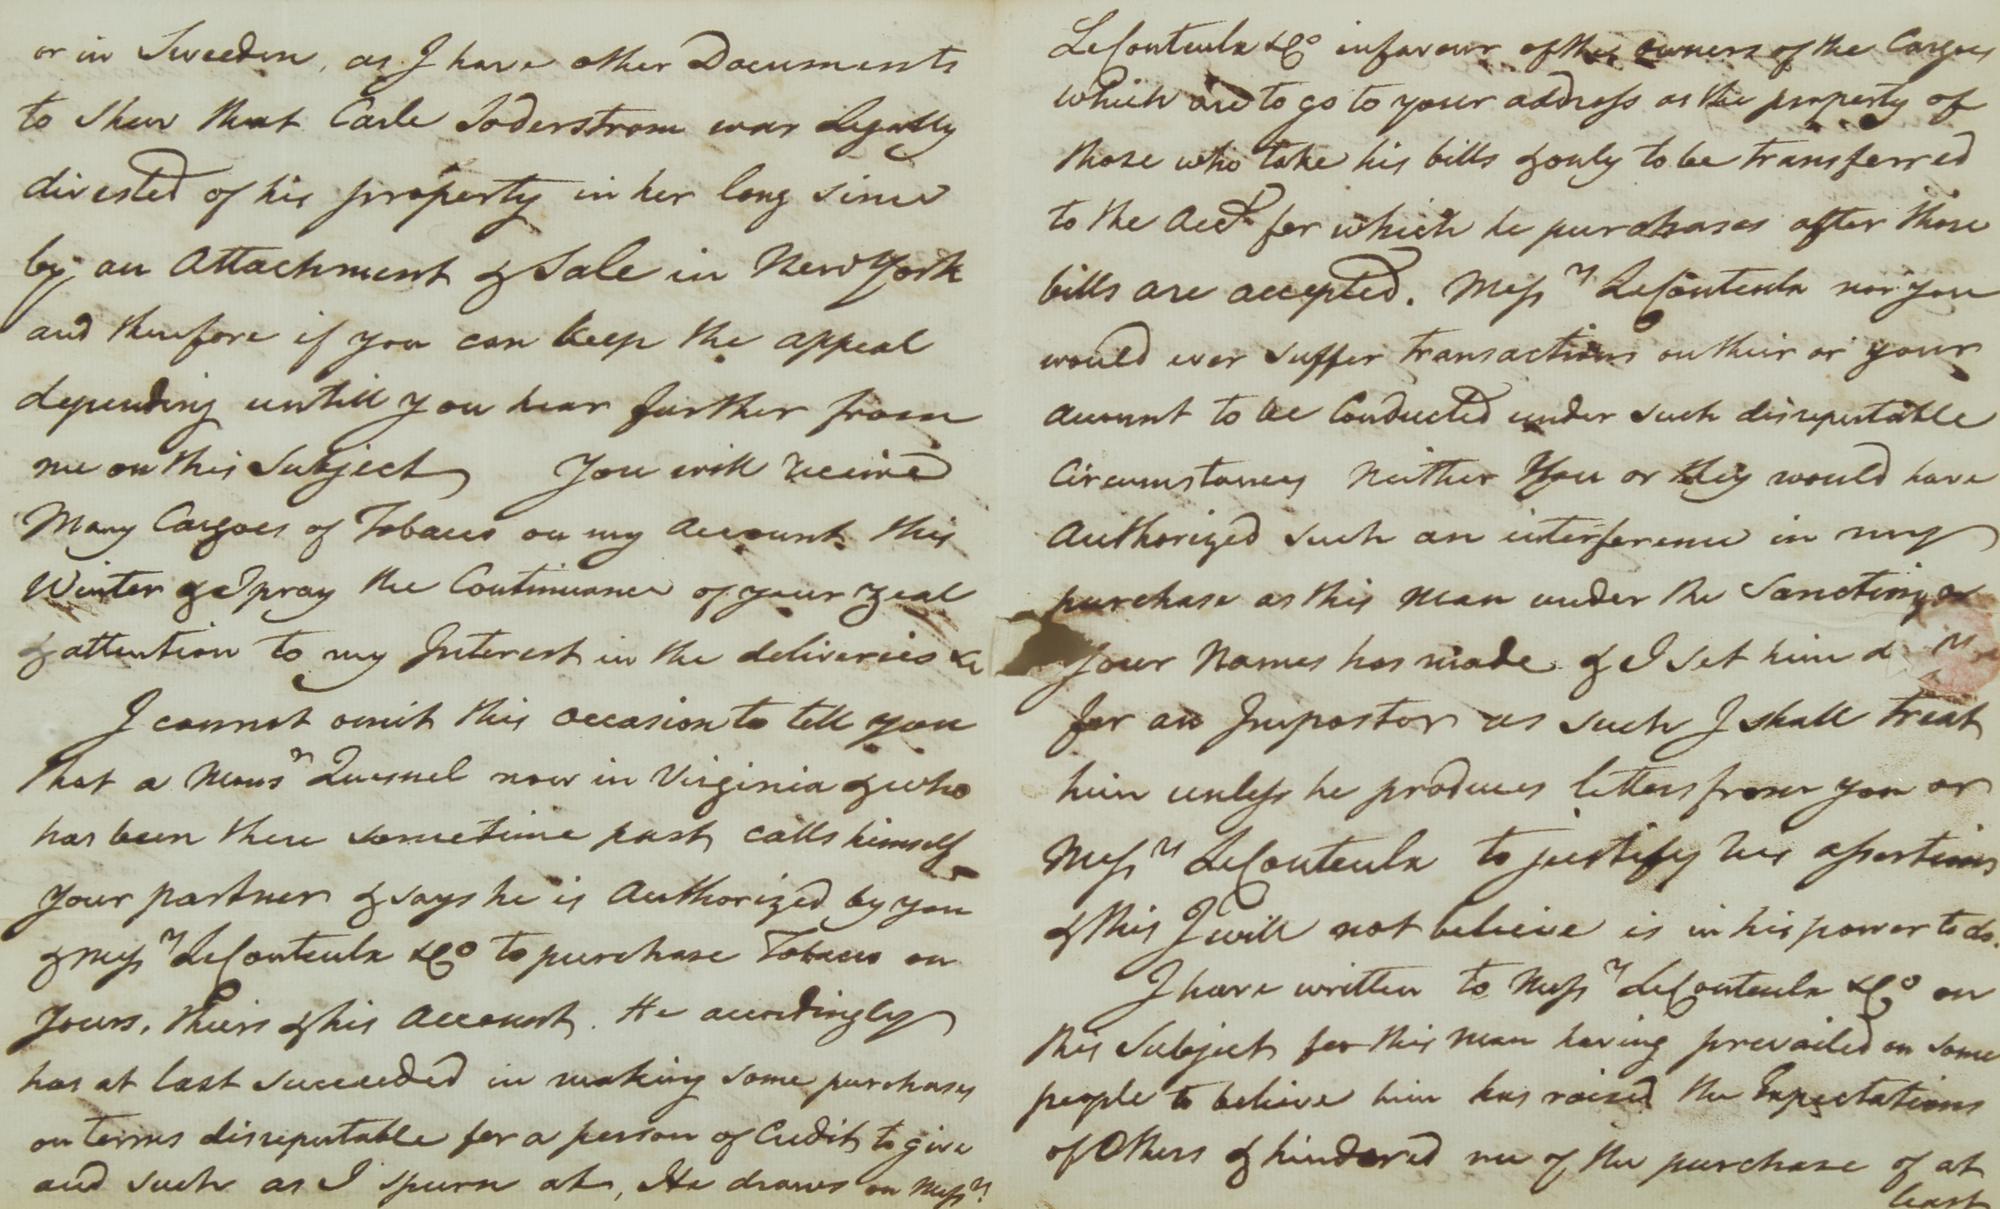 or in Sweeden, as I have other Documents
to shew that Carle Soderstrom was Legally
divested of his property in her long since
by an Attachment & Sale in New York
and therefore if you can keep the appeal
depending untill you hear further from
me on this Subject You will receive
Many Cargoes of Tobacco on my Account this
Winter & I pray the Continuance of your zeal
& attention to my Interest in the deliveries &c
I cannot omit this occasion to tell you
that a Monsr Quesnel now in Virginia & who
has been there sometime past calls himself
your partner & says he is Authorized by you
& Messrs LeCouteulx &Co to purchase Tobacco on
Yours, theirs & his Account. He accordingly
has at last succeeded in making some purchases
on terms disreputable for a person of Credit to give
and such as I spurn at, He draws on Messrs
LeCouteulx &Co in favour of the owners of the Cargoes
which are to go to your address as the property of
those who take his bills & only to be transferred
to the Acct for which he purchases after those
bills are accepted. Messrs LeCouteulx nor you
would ever suffer transactions on their or your
account to be Conducted under such disreputable
Circumstances Neither You or they would have
Authorized such an interference in my
purchase as this Man under the Sanction of
Your Names has made & I set him
for an Impostor as such I shall treat
him unless he produces letters from you or
Messrs LeCouteulx to justify his assertions
& this I will not believe is in his power to do.
I have written to Messrs LeCouteulx &Co on
this Subject for this Man having prevailed on some
people to believe him has raised the Expectations
of Others & hindered me of the purchase of at
least